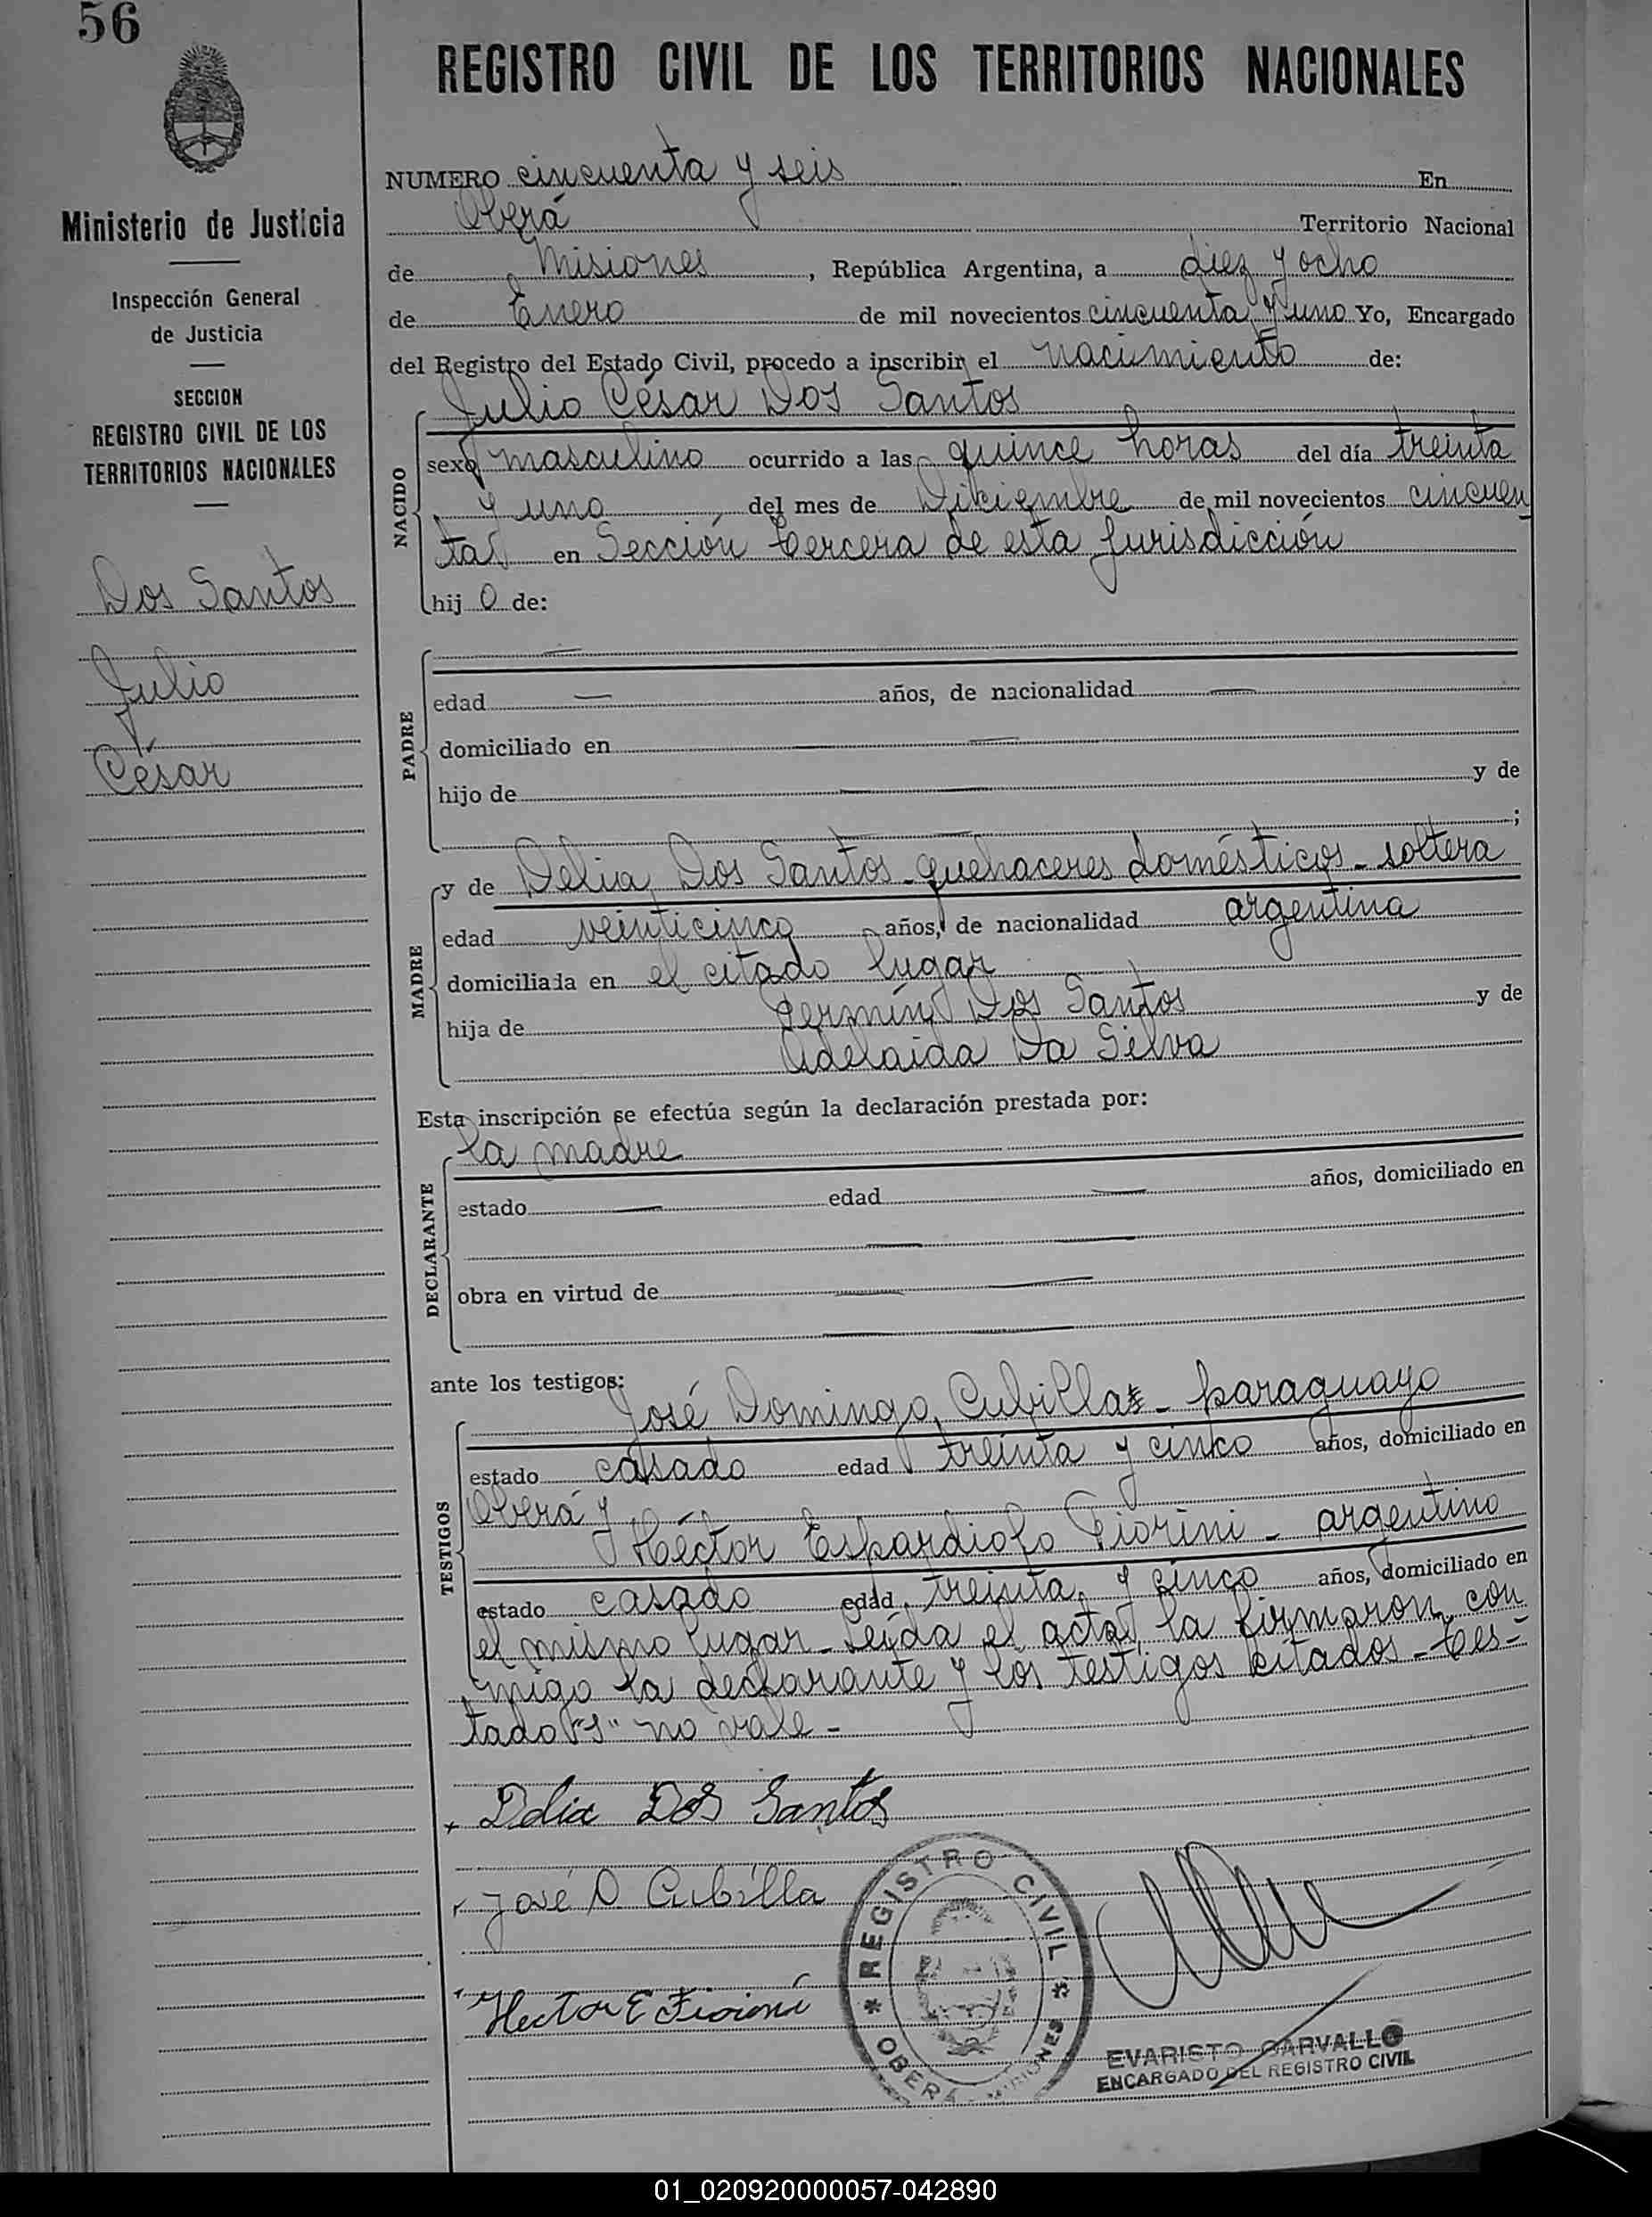 56
REGISTRO CIVIL DE LOS TERRITORIOS NACIONALES
Ministerio de Justicia
Inspección General
de Justicia
SECCION
REGISTRO CIVIL DE LOS
TERRITORIOS NACIONALES
Dos Santos
Julio
César
NUMERO cincuenta y seis En
Oberá Territorio Nacional
de Misiones, República Argentina, a diez y ocho
de Enero de mil novecientos cincuenta y uno Yo, Encargado
del Registro del Estado Civil, procedo a inscribir el nacimiento de:
NACIDO
Julio César Dos Santos
sexo masculino ocurrido a las quince horas del día treinta
y uno del mes de Diciembre de mil novecientos cincuen
ta en Sección tercera de esta jurisdicción
hij o de:
PADRE
edad — años, de nacionalidad —
domiciliado en —
hijo de — y de
— ;
MADRE
y de Delia Dos Santos - quehaceres domésticos - soltera
edad veinticinco años, de nacionalidad argentina
domiciliada en el citado lugar
hija de Germín Dos Santos y de
Adelaida Da Silva
Esta inscripción se efectúa según la declaración prestada por:
DECLARANTE
la madre
estado — edad — años, domiciliado en
obra en virtud de —
ante los testigos:
TESTIGOS
José Domingo Cubillas - paraguayo
estado casado edad treinta y cinco años, domiciliado en
Oberá y
Héctor Fiorini - argentino
estado casado edad treinta y cinco años, domiciliado en
el mismo lugar - Leída el acta, la firmaron con
migo la declarante y los testigos citados - tes-
tado "s" no vale -
Delia Dos Santos
José D. Cubilla
Hector E Fiorini
* REGISTRO CIVIL * OBERA - MISIONES
EVARISTO CARVALLO
ENCARGADO DEL REGISTRO CIVIL
01_020920000057-042890